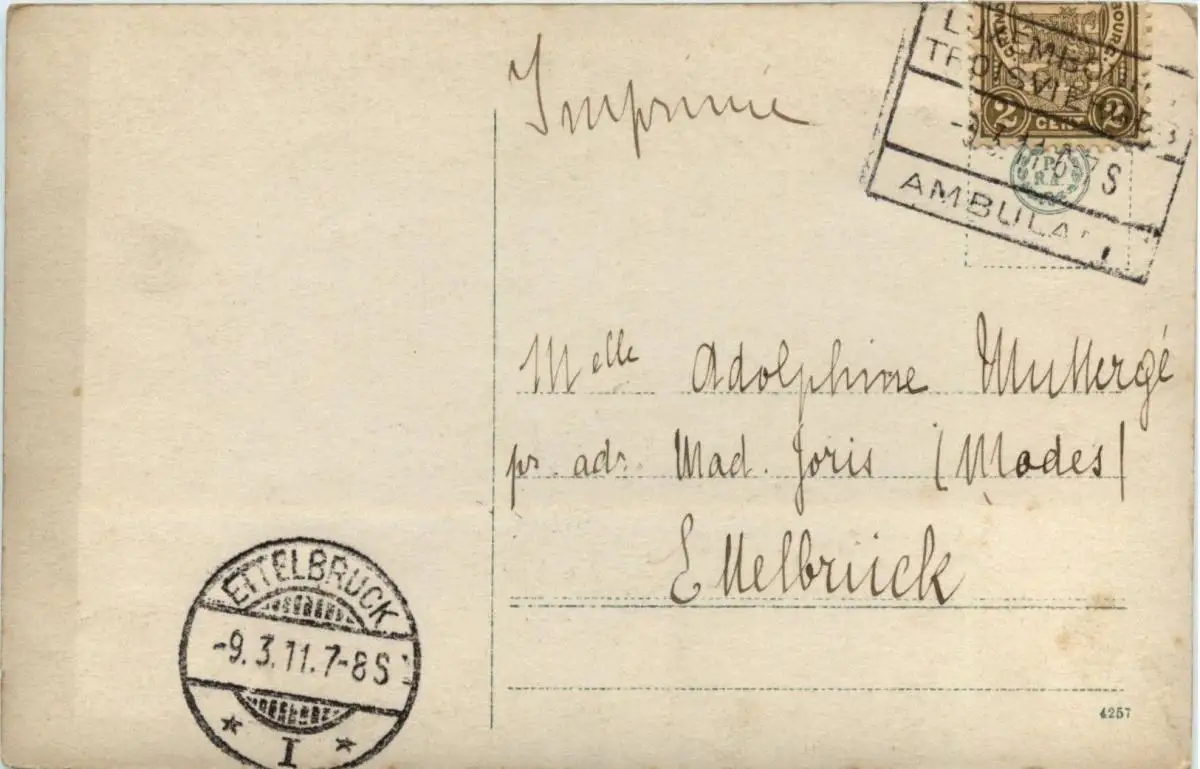 Imprimé
GRAND
BOURG
2 CENT 2
LUXEMBOURG
TROISVIERGES
AMBULANT
Melle Adolphine Muttergé
pr. adr. Mad. Joris (Modes)
Ettelbrück
ETTELBRÜCK
-9.3.11.7-8S
* I *
4257